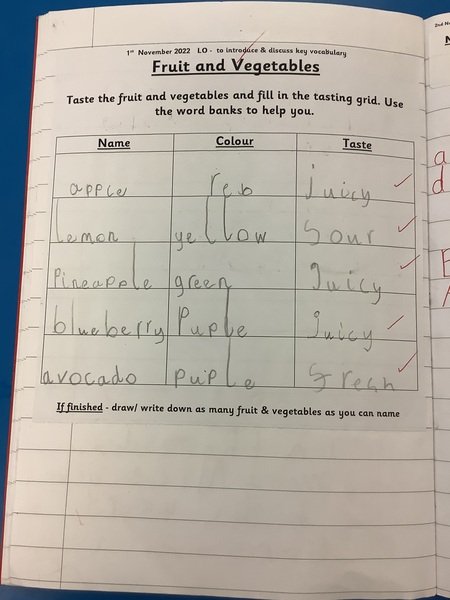 1st November 2022 LO - to introduce & discuss key vocabulary
Fruit and Vegetables
Taste the fruit and vegetables and fill in the tasting grid. Use
the word banks to help you.
Name Colour Taste
apple reb juicy
lemon yellow Sour
Pineapple green Juicy
blueberry Puple Juicy
avocado puiple
If finished - draw/ write down as many fruit & vegetables as you can name